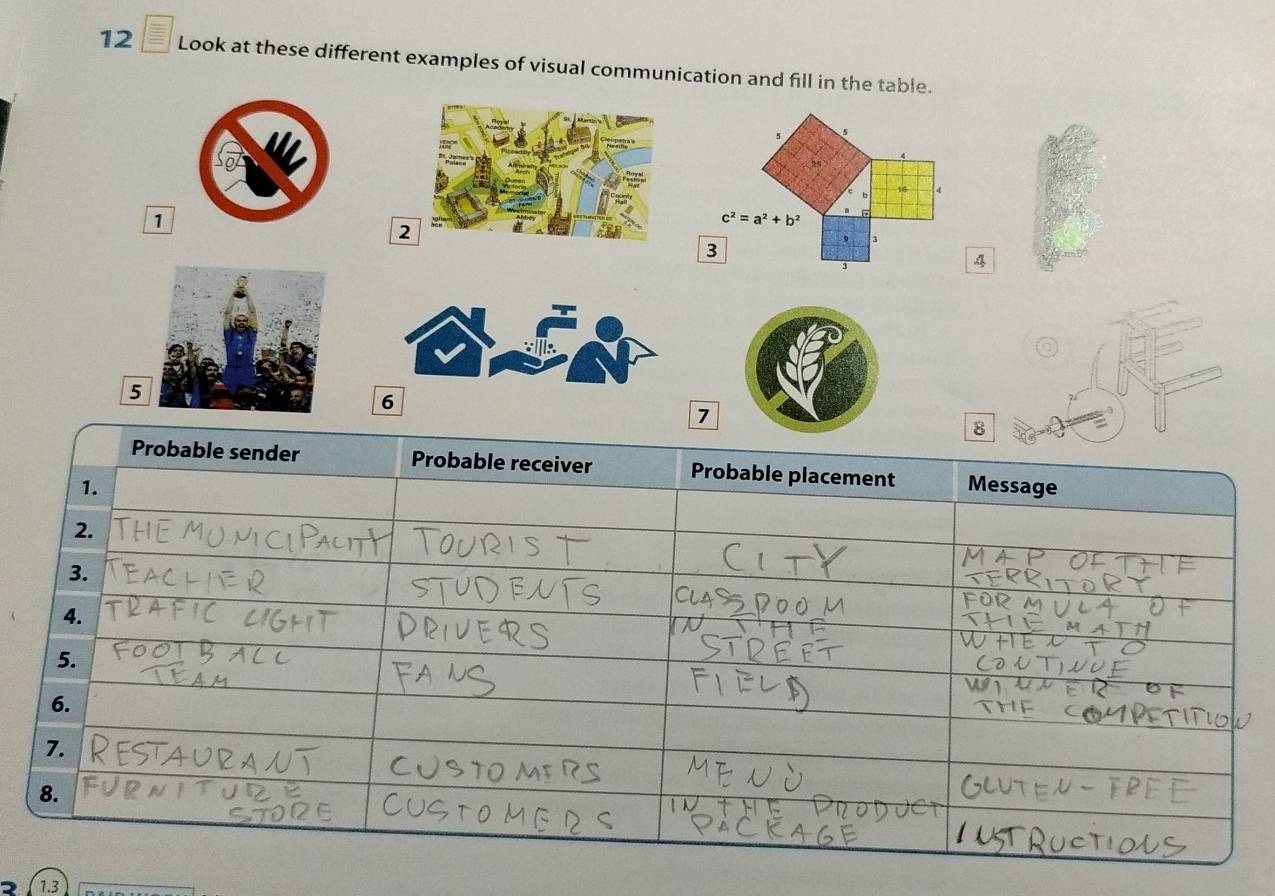 12 Look at these different examples of visual communication and fill in the table.
1
2
Royal Academy
St. Martin's
Cleopatra's Needle
St. James's Palace
Piccadilly
Trafalgar Sq
Admiralty Arch
Queen Victoria Memorial
Royal Festival Hall
County Hall
Westminster Abbey
3
c² = a² + b²
5 5
25
4
16 4
c b
a
9 3
3
4
5
6
7
8
2x
Probable sender Probable receiver Probable placement Message
1.
2. THE MUNICIPALITY TOURIST CITY MAP OF THE TERRITORY
3. TEACHER STUDENTS CLASSROOM FORMULA OF THE MATH
4. TRAFIC LIGHT DRIVERS IN THE STREET WHEN TO CONTINUE
5. FOOTBALL TEAM FANS FIELD WINNER OF THE COMPETITION
6.
7. RESTAURANT CUSTOMERS MENÙ GLUTEN-FREE
8. FURNITURE STORE CUSTOMERS IN THE PRODUCT PACKAGE INSTRUCTIONS
3 1.3